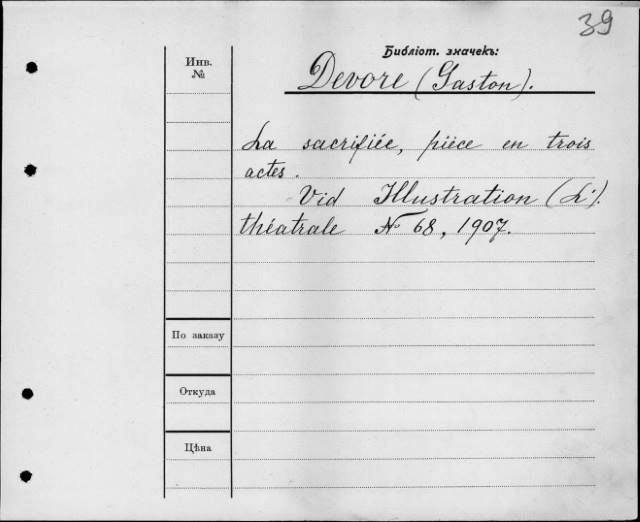 39
Библіот. значекъ:
Инв.
№
Devore (Gaston).
La sacrifiée, pièce en trois
actes.
Vid Illustration (L').
théatrale № 68, 1907.
По заказу
Откуда
Цѣна